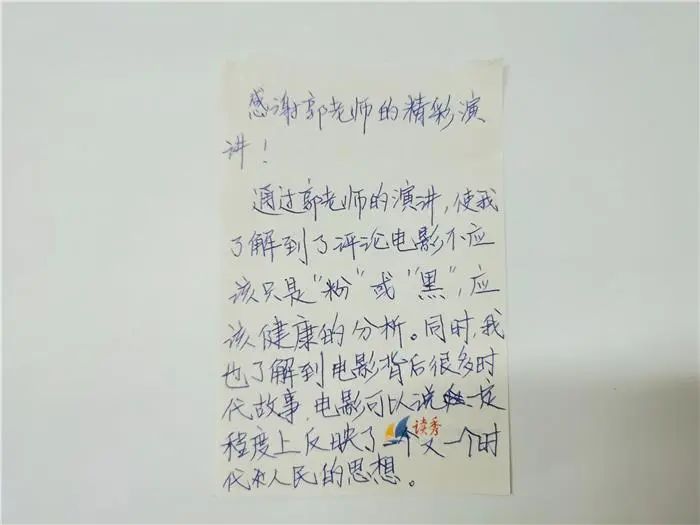 感谢郭老师的精彩演
讲！
通过郭老师的演讲，使我
了解到了评论电影不应
该只是“粉”或“黑”，应
该健康的分析。同时，我
也了解到电影背后很多时
代故事，电影可以说一定
程度上反映了一个又一个时
代人民的思想。
读秀